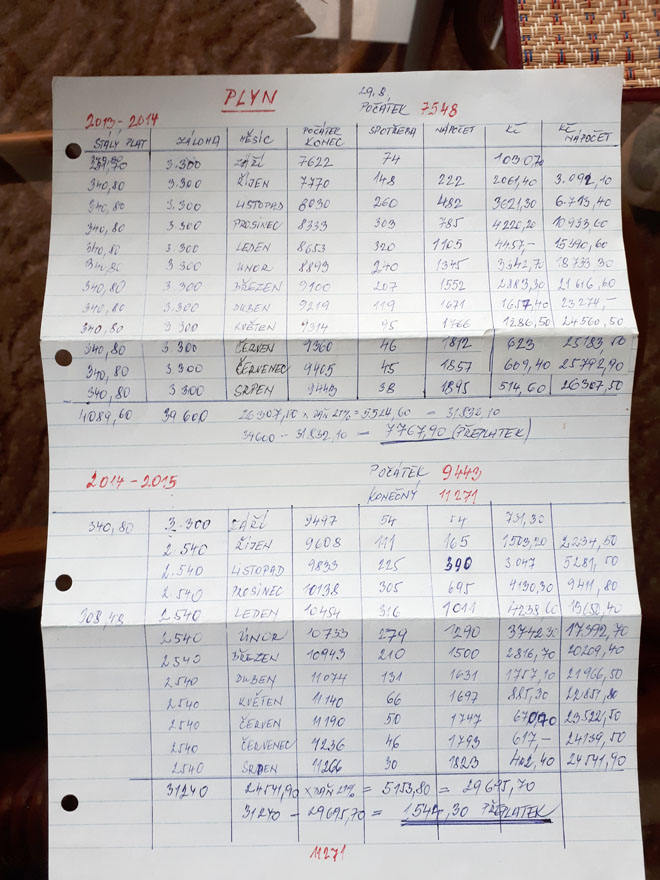 PLYN
29.8.
POČÁTEK 7548
2013-2014
STÁLÝ PLAT ZÁLOHA MĚSÍC POČÁTEK KONEC SPOTŘEBA NÁPOČET KČ KČ NÁPOČET
3.300 ZÁŘÍ 7622 74
340,80 3.300 ŘÍJEN 7770 148 222 2061,40 3.092,10
340,80 3.300 LISTOPAD 8030 260 482 3621,30 6.713,40
340,80 3.300 PROSINEC 8333 303 785 4220,20 10933,60
340,80 3.300 LEDEN 8653 320 1105 4457,- 15390,60
340,80 3.300 ÚNOR 8893 240 1345 3342,70 18733,30
340,80 3.300 BŘEZEN 9100 207 1552 2883,30 21616,60
340,80 3.300 DUBEN 9219 119 1671 1657,40 23274,-
340,80 3 300 KVĚTEN 9314 95 1766 1286,50 24560,50
340,80 3.300 ČERVEN 9360 46 1812 623 25183,50
340,80 3.300 ČERVENEC 9405 45 1857 609,40 25792,90
340,80 3 300 SRPEN 9443 38 1895 514,60 26307,50
4089,60 39 600 26307,50 × DAŇ 21% = 5.524,60 = 31832,10
39600 - 31832,10 = 7767,90 (PŘEPLATEK)
2014-2015
POČÁTEK 9443
KONEČNÝ 11271
340,80 3.300 ZÁŘÍ 9497 54 54 731,30
2.540 ŘÍJEN 9608 111 165 1503,20 2234,50
2.540 LISTOPAD 9833 225 390 3047 5281,50
2.540 PROSINEC 10138 305 695 4130,30 9411,80
308,48 2.540 LEDEN 10454 316 1011 4238,60 13650,40
2540 ÚNOR 10733 279 1290 3742,30 17392,70
2540 BŘEZEN 10943 210 1500 2816,70 20209,40
2540 DUBEN 11074 131 1631 1757,10 21966,50
2540 KVĚTEN 11140 66 1697 885,30 22851,80
2540 ČERVEN 11190 50 1747 670,70 23522,50
2540 ČERVENEC 11236 46 1793 617,- 24139,50
2540 SRPEN 11266 30 1823 402,40 24541,90
31240 24541,90 × DAŇ 21% = 5153,80 = 29695,70
31240 - 29695,70 = 1544,30 PŘEPLATEK
11271